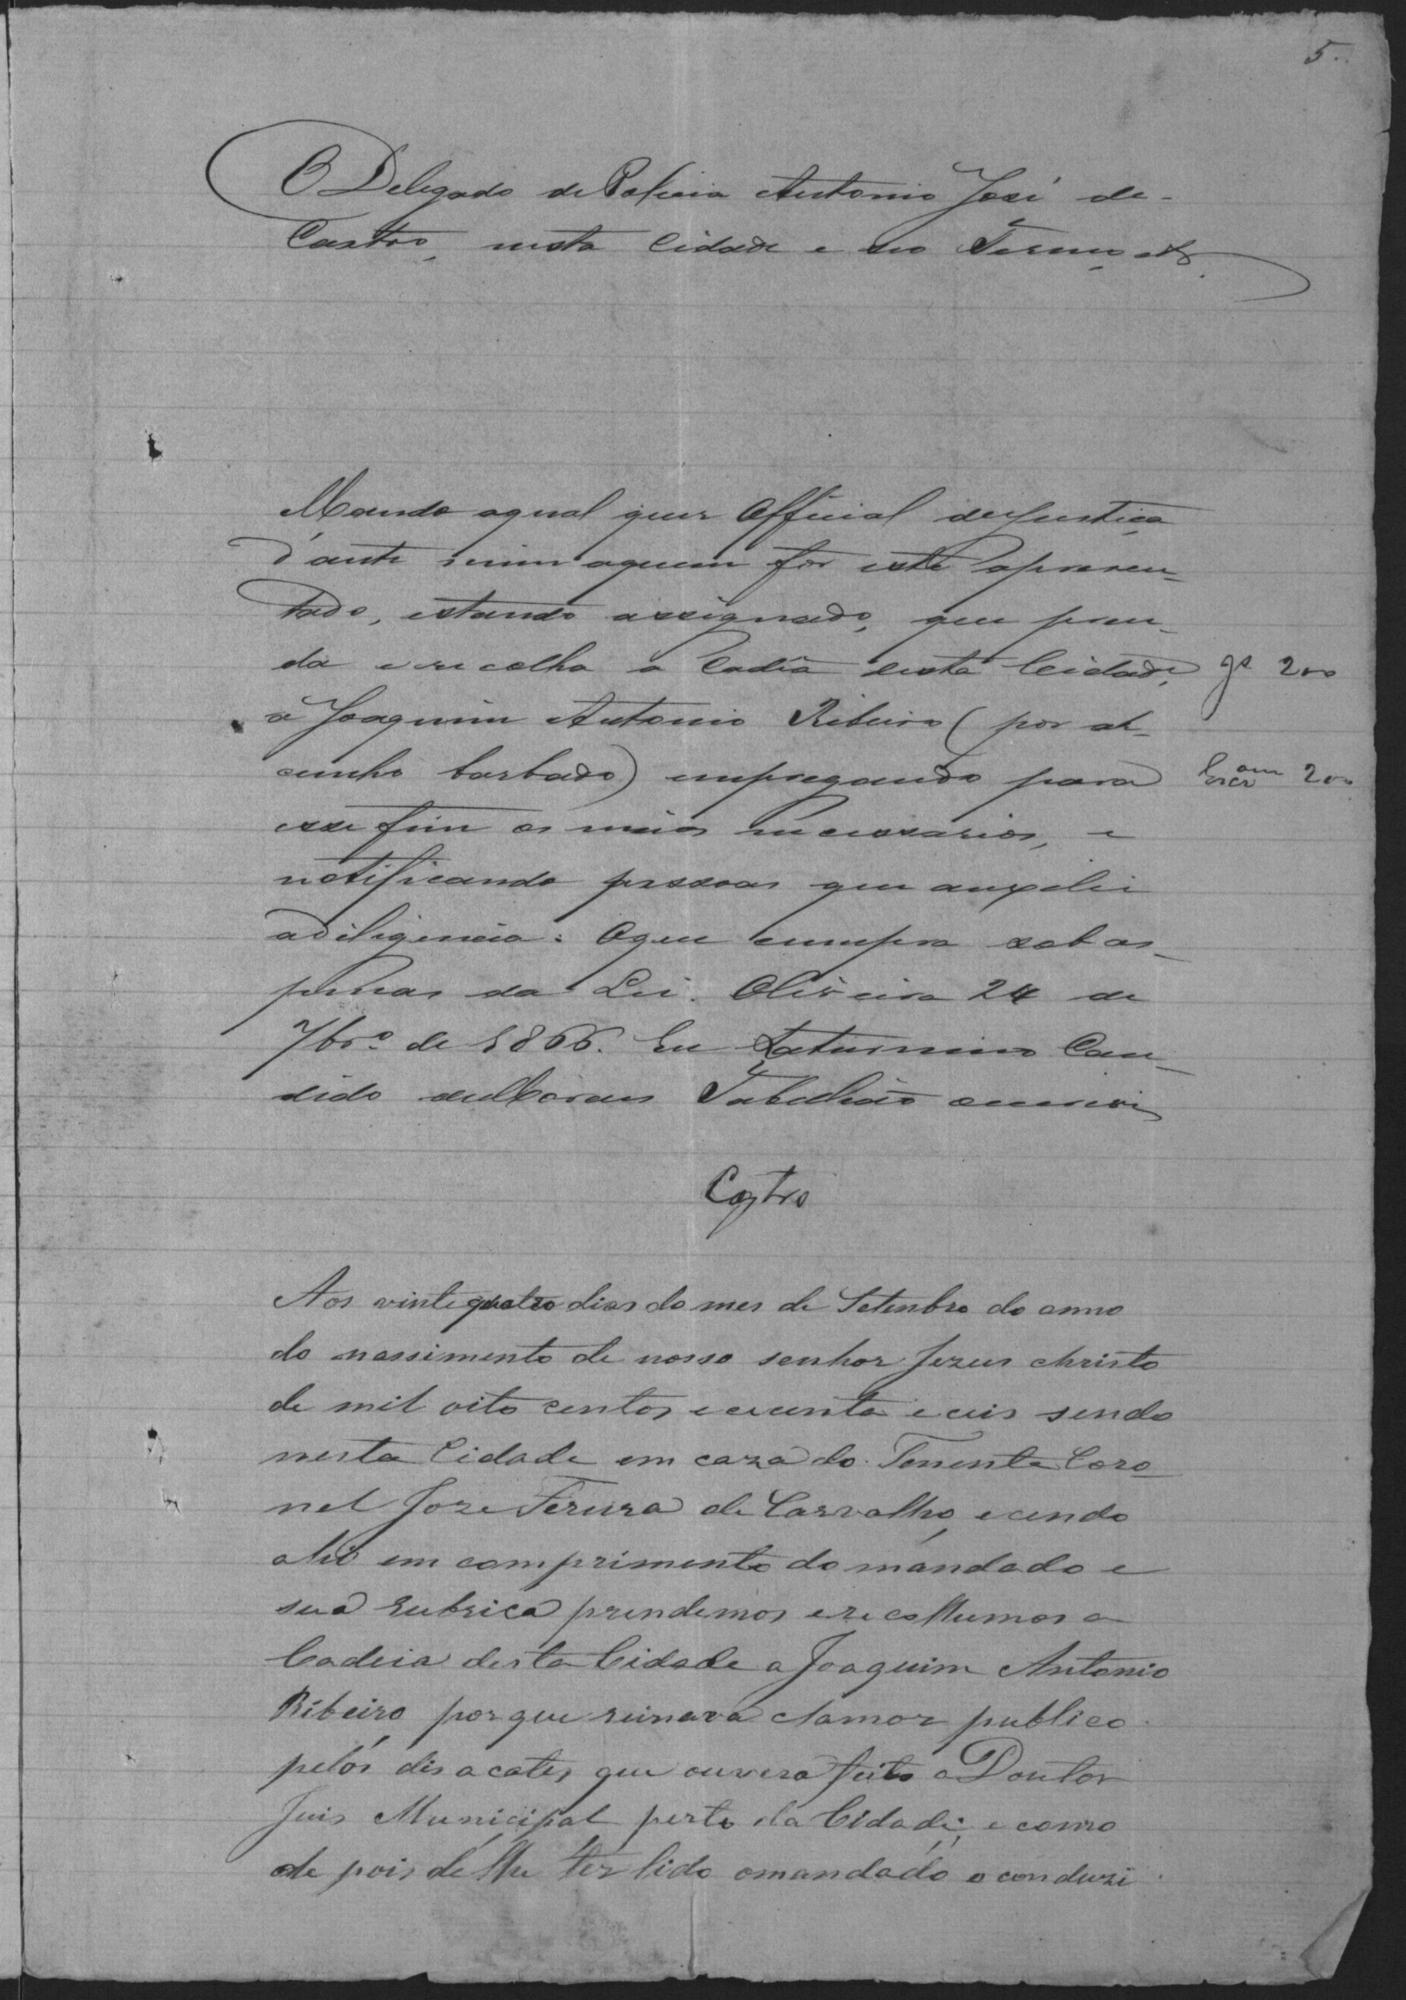 5.
O Delegado de Policia Antonio José de
Castro, nesta Cidade e seo Termo etc.
Mando aqual quer Official deJustiça
d'ante mim aquem for este apresen-
tado, estando assignado, que pren-
da e recolha a Cadîa desta Cidade,
gª 200
a Joaquim Antonio Ribeiro (por al-
cunho barbado) empregando para
200
esse fim os meios necessarios, e
notificando pessoas que auxilie
adiligencia: Oque cumpra sob as
penas da Lei. Oliveira 24 de
7brº de 1866. Eu Saturnino Can-
dido deMoraes Tabellião escrevi
Castro
Aos vinte quatro dias do mes de Setembro do anno
do nassimento de nosso senhor Jezus christo
de mil oito centos e cecenta e ceis sendo
nesta Cidade em caza do Tenente Coro
nel Joze Ferera de Carvalho, e cendo
ahi em comprimento do mandado e
sua rubrica prendemos e recolhemos a
Cadeia desta Cidade a Joaquim Antonio
Ribeiro, porque reinava clamor publico
pelos disacates que ouvera feito o Doutor
Juis Municipal perto da Cidade; e como
de pois de lhe ter lido omandado o conduzi